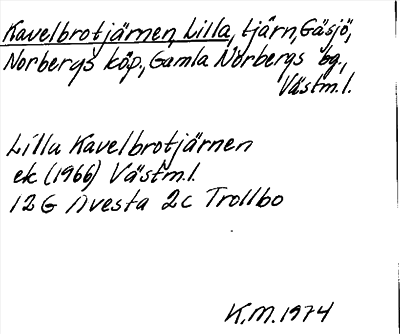 Kavelbrotjärnen, Lilla, tjärn, Gäsjö,
Norbergs köp., Gamla Norbergs bg.,
Västm.l.
Lilla Kavelbrotjärnen
ek (1966) Västm.l.
12G Avesta 2c Trollbo
K.M. 1974